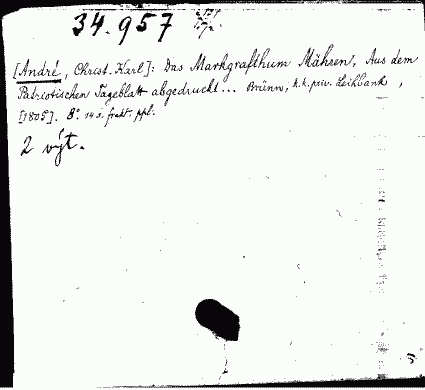 34.957
[André, Christ. Karl]: Das Markgrafthum Mähren. Aus dem
Patriotischen Tageblatt abgedruckt... Brünn, k.k. priv. Leihbank,
[1805]. 8°. 14 s. frakt. ppl.
2 výt.